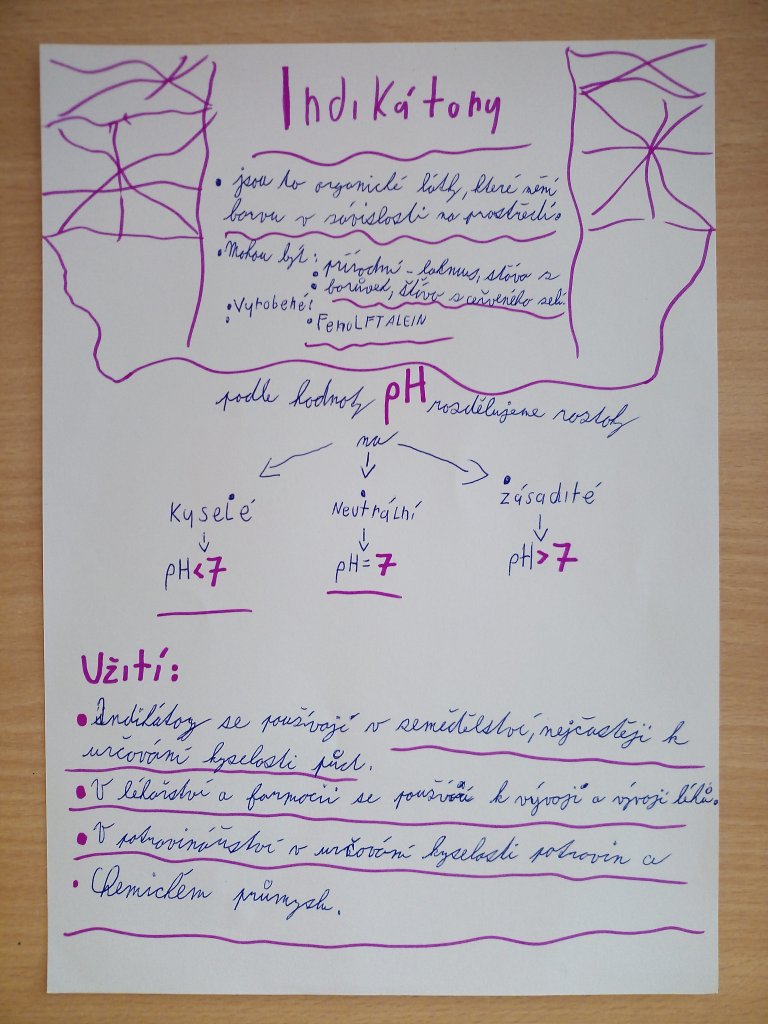 Indikátory
• jsou to organické látky, které mění
barvu v sávislosti na prostředí.
• Mohou být:
• přírodní - lakmus, šťáva z
• borůvek, šťáva z červeného zelí.
• Vyrobené:
• FenoLFTALEIN
podle hodnoty pH rozdělujeme roztoky
na
Kyselé Neutrální Zásadité
pH<7 pH=7 pH>7
Užití:
• Indikátory se používají v zemědělství, nejčastěji k
určování kyselosti půd.
• V lékařství a farmacii se používá k vývoji a vývoji léků.
• V potravinářství v určování kyselosti potravin a
• Chemickém průmyslu.